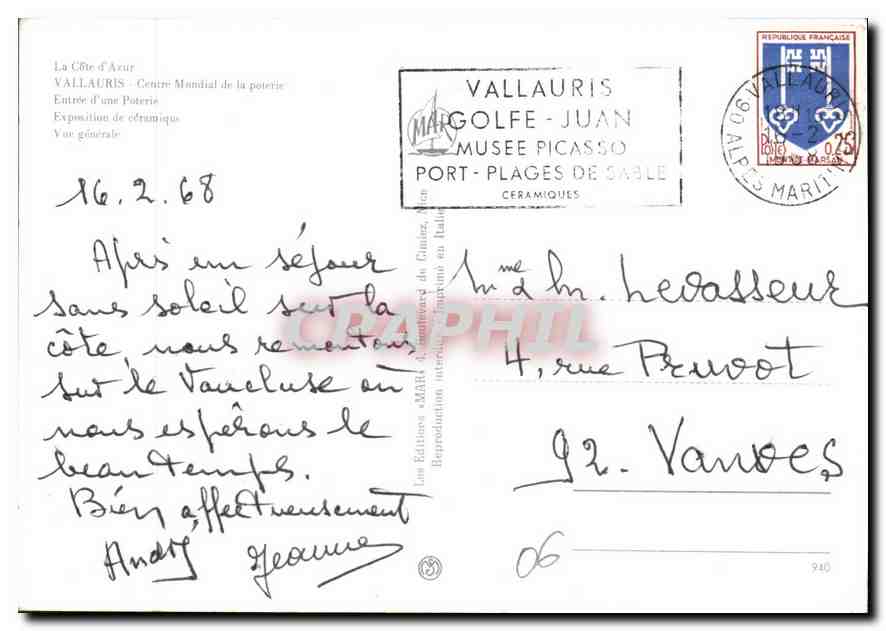 La Côte d'Azur
VALLAURIS - Centre Mondial de la poterie
Entrée d'une Poterie
Exposition de céramique
Vue générale
VALLAURIS
GOLFE - JUAN
MUSEE PICASSO
PORT - PLAGES DE SABLE
CERAMIQUES
MAR
REPUBLIQUE FRANÇAISE
0,25
MONT-DE-MARSAN
VALLAURIS
06 ALPES MARITIMES
16.2.68
Après un séjour
sans soleil sur la
côte, nous remontons
sur le Vaucluse où
nous espérons le
beau temps.
Bien affectueusement
André Jeanne
Les Editions «MAR» 4, boulevard de Cimiez, Nice
Reproduction interdite - Imprimé en Italie
Mme & Mr. Levasseur
4, rue Pruvot
92. Vanves
06
940
CPAPHIL